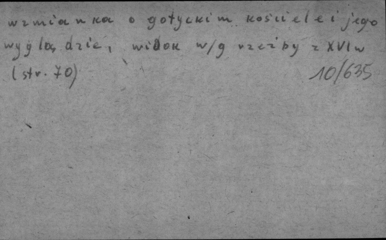 wzmianka o gotyckim kościele i jego
wyglądzie, widok w/g rzeźby z XVI w
(str. 70)
10/635